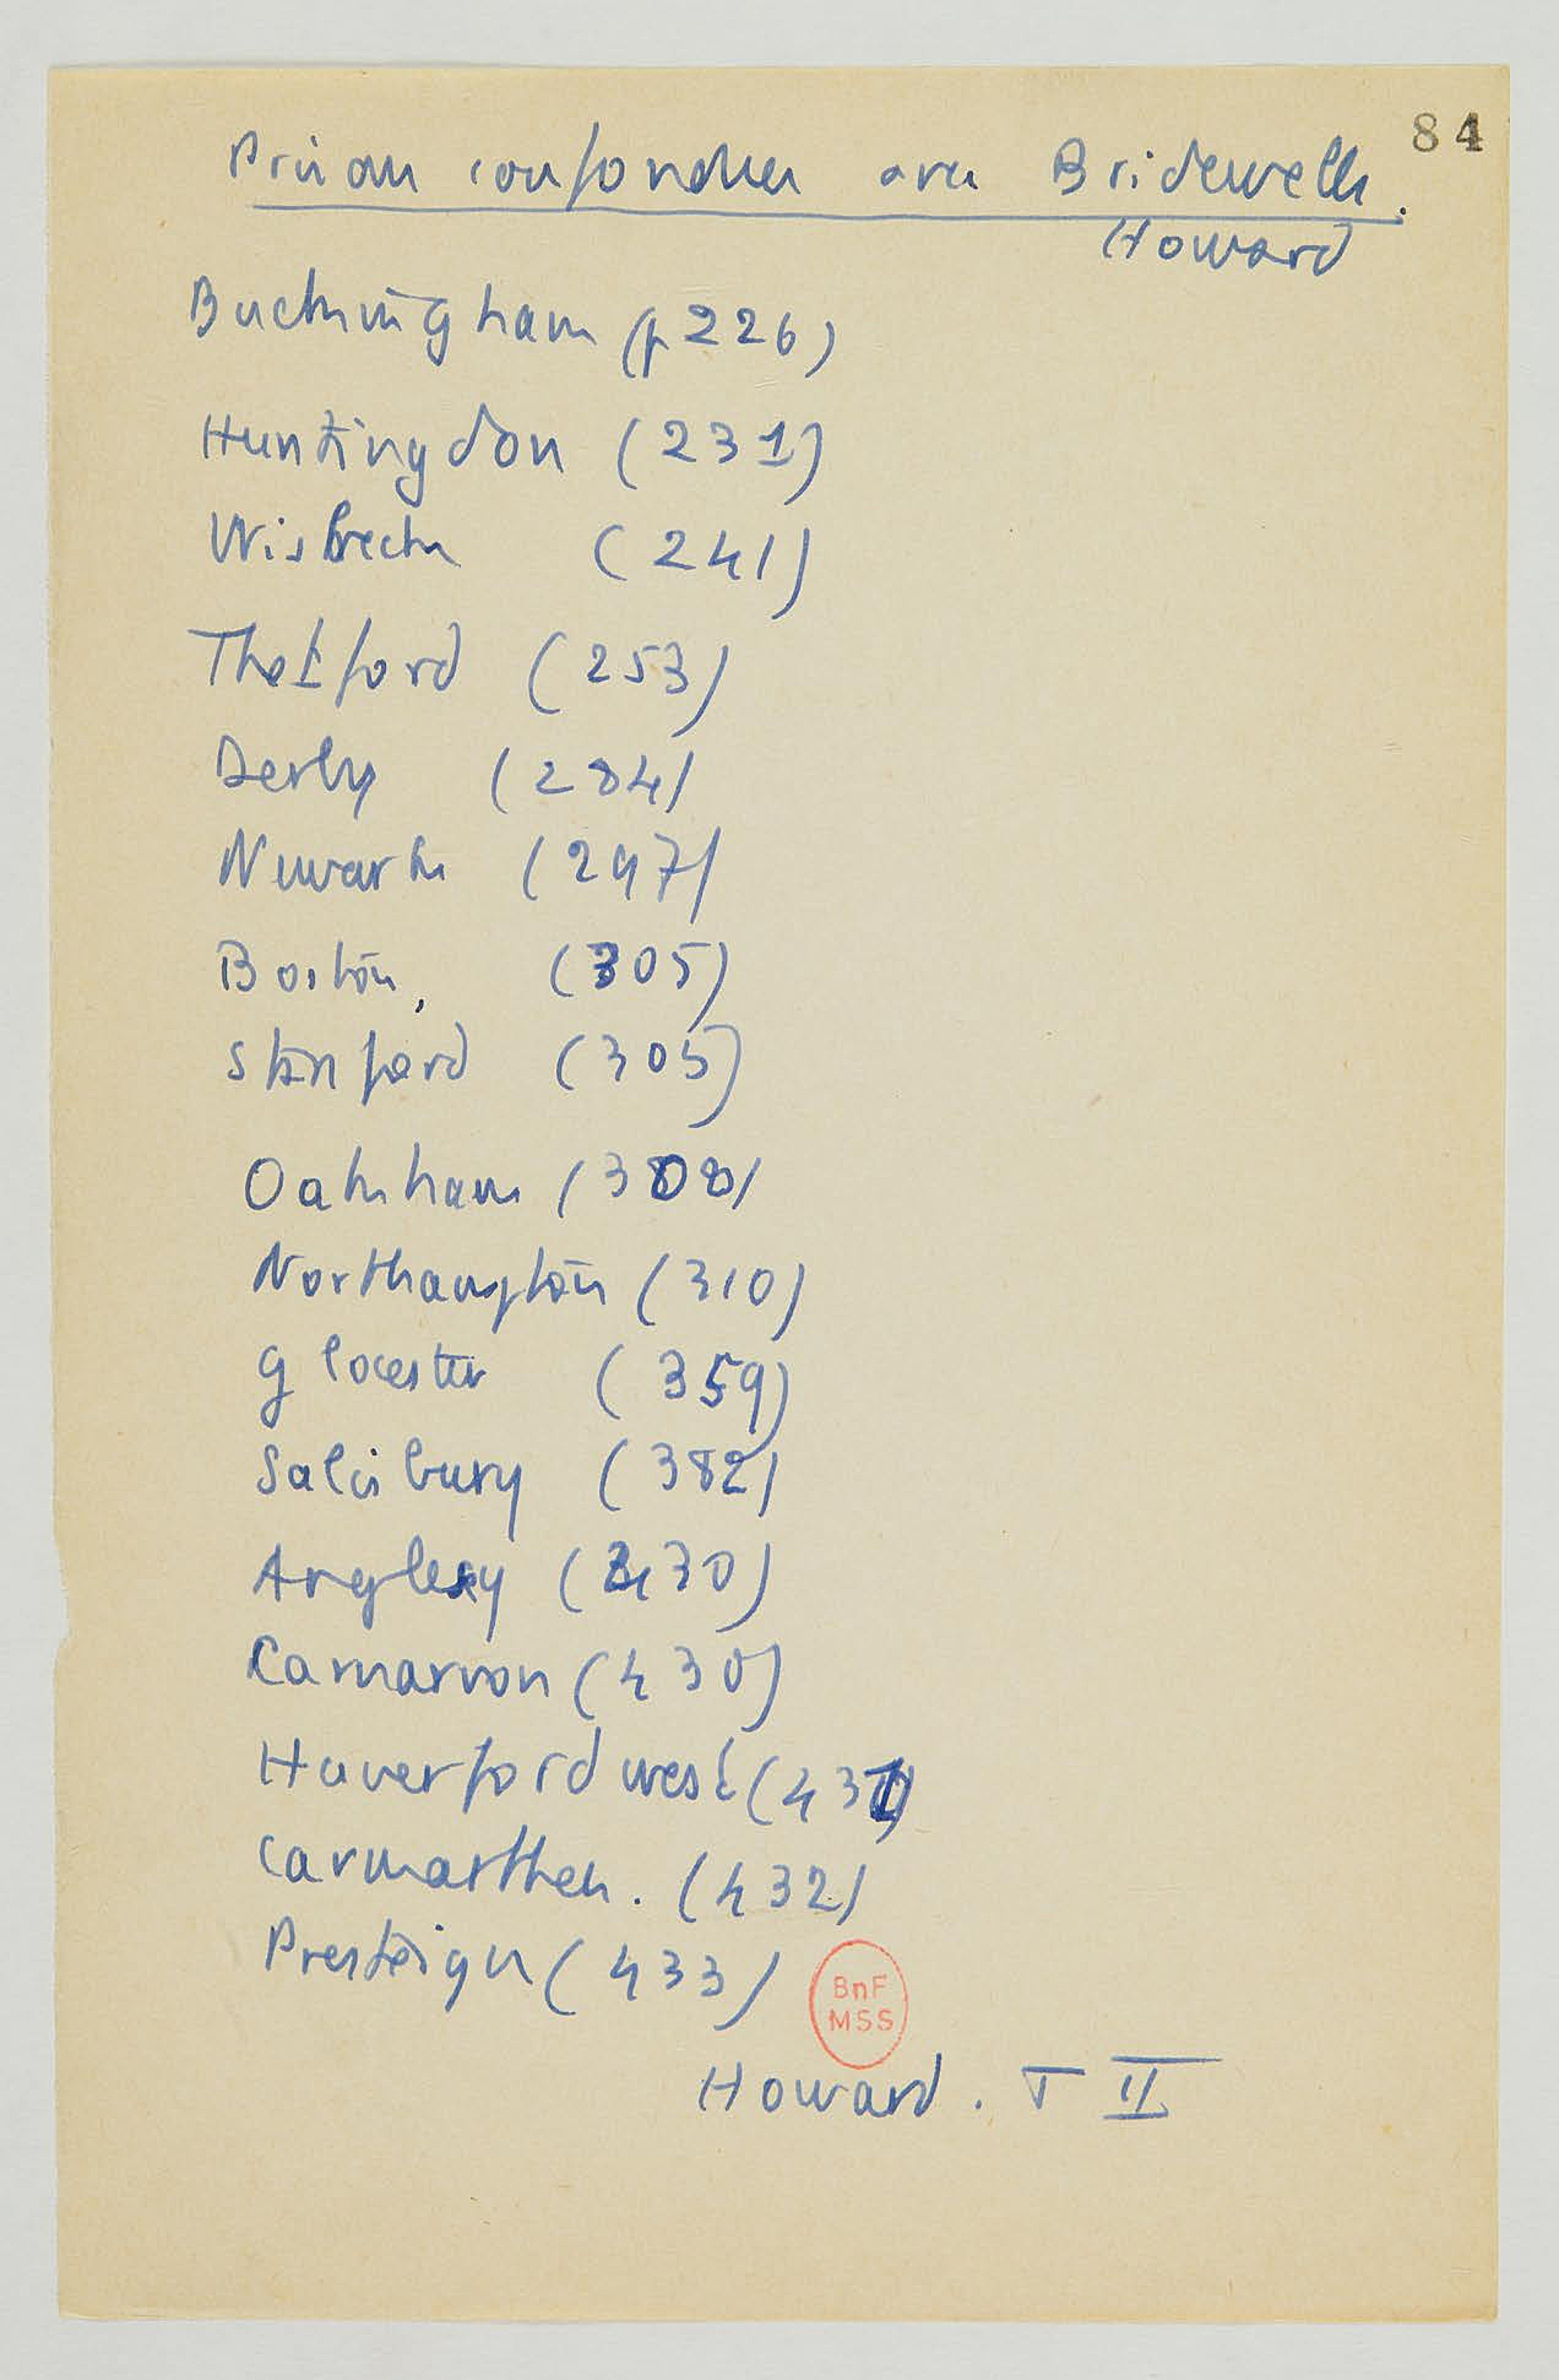 84
Prison confondues avec Bridewells.
Howard
Buckingham (p 226)
Huntingdon (231)
Wisbech (241)
Thetford (253)
Derby (284)
Newark (297)
Boston, (305)
Stanford (305)
Oakham (308)
Northampton (310)
Glocester (359)
Salisbury (382)
Anglesey (430)
Carnarvon (430)
Haverford west (431)
Carmarthen. (432)
Presteign (433)
BnF
MSS
Howard. T II